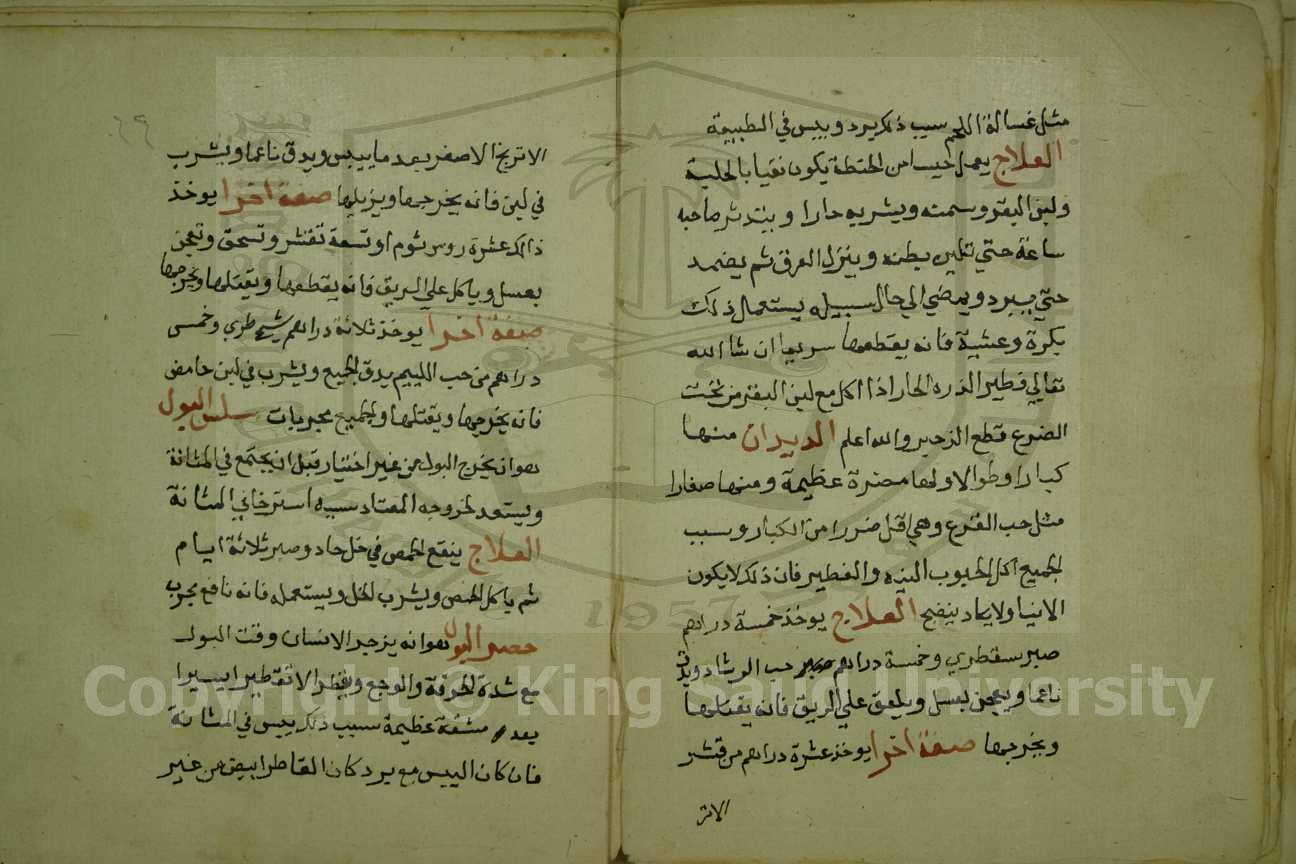 مثل غسالة اللحم سبب ذلك برد ويبس في الطبيعة
العلاج يعمل حيسا من الحنطة يكون نقيا بالحلبة
ولبن البقر وسمنه ويشربه حارا ويتدثر صاحبه
ساعة حتي تلين بطنه وينزل العرق ثم يضمد
حتي يبرد ويمضي الي حال سبيله يستعمل ذلك
بكرة وعشية فانه يقطعها سريعا ان شا الله
تعالي فطير الذره الحار اذا اكل مع لبن البقر من تحت
الضرع قطع الزحير والله اعلم الديدان منها
كبارا وطوالا ولها مضرة عظيمة ومنها صغارا
مثل حب القرع وهي اقل ضررا من الكبار وسبب
الجميع اكل الحبوب النيه والفطير فان ذلك لا يكون
الا نيا ولا يكاد ينضج العلاج يوخذ خمسة دراهم
صبر سقطري وخمسة دراهم حب الرشاد ويدق
ناعما ويعجن بعسل ويلعق علي الريق فانه يقتلها
ويخرجها صفة اخرا يوخذ عشرة دراهم من قشر
الاتر
٤٩
الاترنج الاصفر بعد ما ييبس ويدق ناعما ويشرب
في لبن فانه يخرجها ويزيلها صفة اخرا يوخذ
ذالك عشرة روس ثوم او تسعة تقشر وتسحق وتعجن
بعسل وياكل علي الريق فانه يقطعها ويقتلها ويخرجها
صفة اخرا يوخذ ثلاثة دراهم شيح طري وخمسى
دراهم من حب يدق الجميع ويشرب في لبن حامض
فانه يخرجها ويقتلها والجميع مجربات سلس البول
هو ان يخرج البول من غير اختيار قبل ان يجتمع في المثانة
ويستعد لخروجه المعتاد سببه استرخاي المثانة
العلاج ينقع الحمص في خل حاد وصبر ثلاثة ايام
ثم ياكل الحمص ويشرب الخل ويستعمله فانه نافع مجرب
حصر البول هو انه يزحر الانسان وقت البول
مع شدة الحرقة والوجع ويقطر الا تقطيرا يسيرا
بعد مشقة عظيمة سبب ذلك يبس في المثانة
فان كان اليبس مع برد كان القاطر ابيض من غير
Copyright © King Saud University
1957